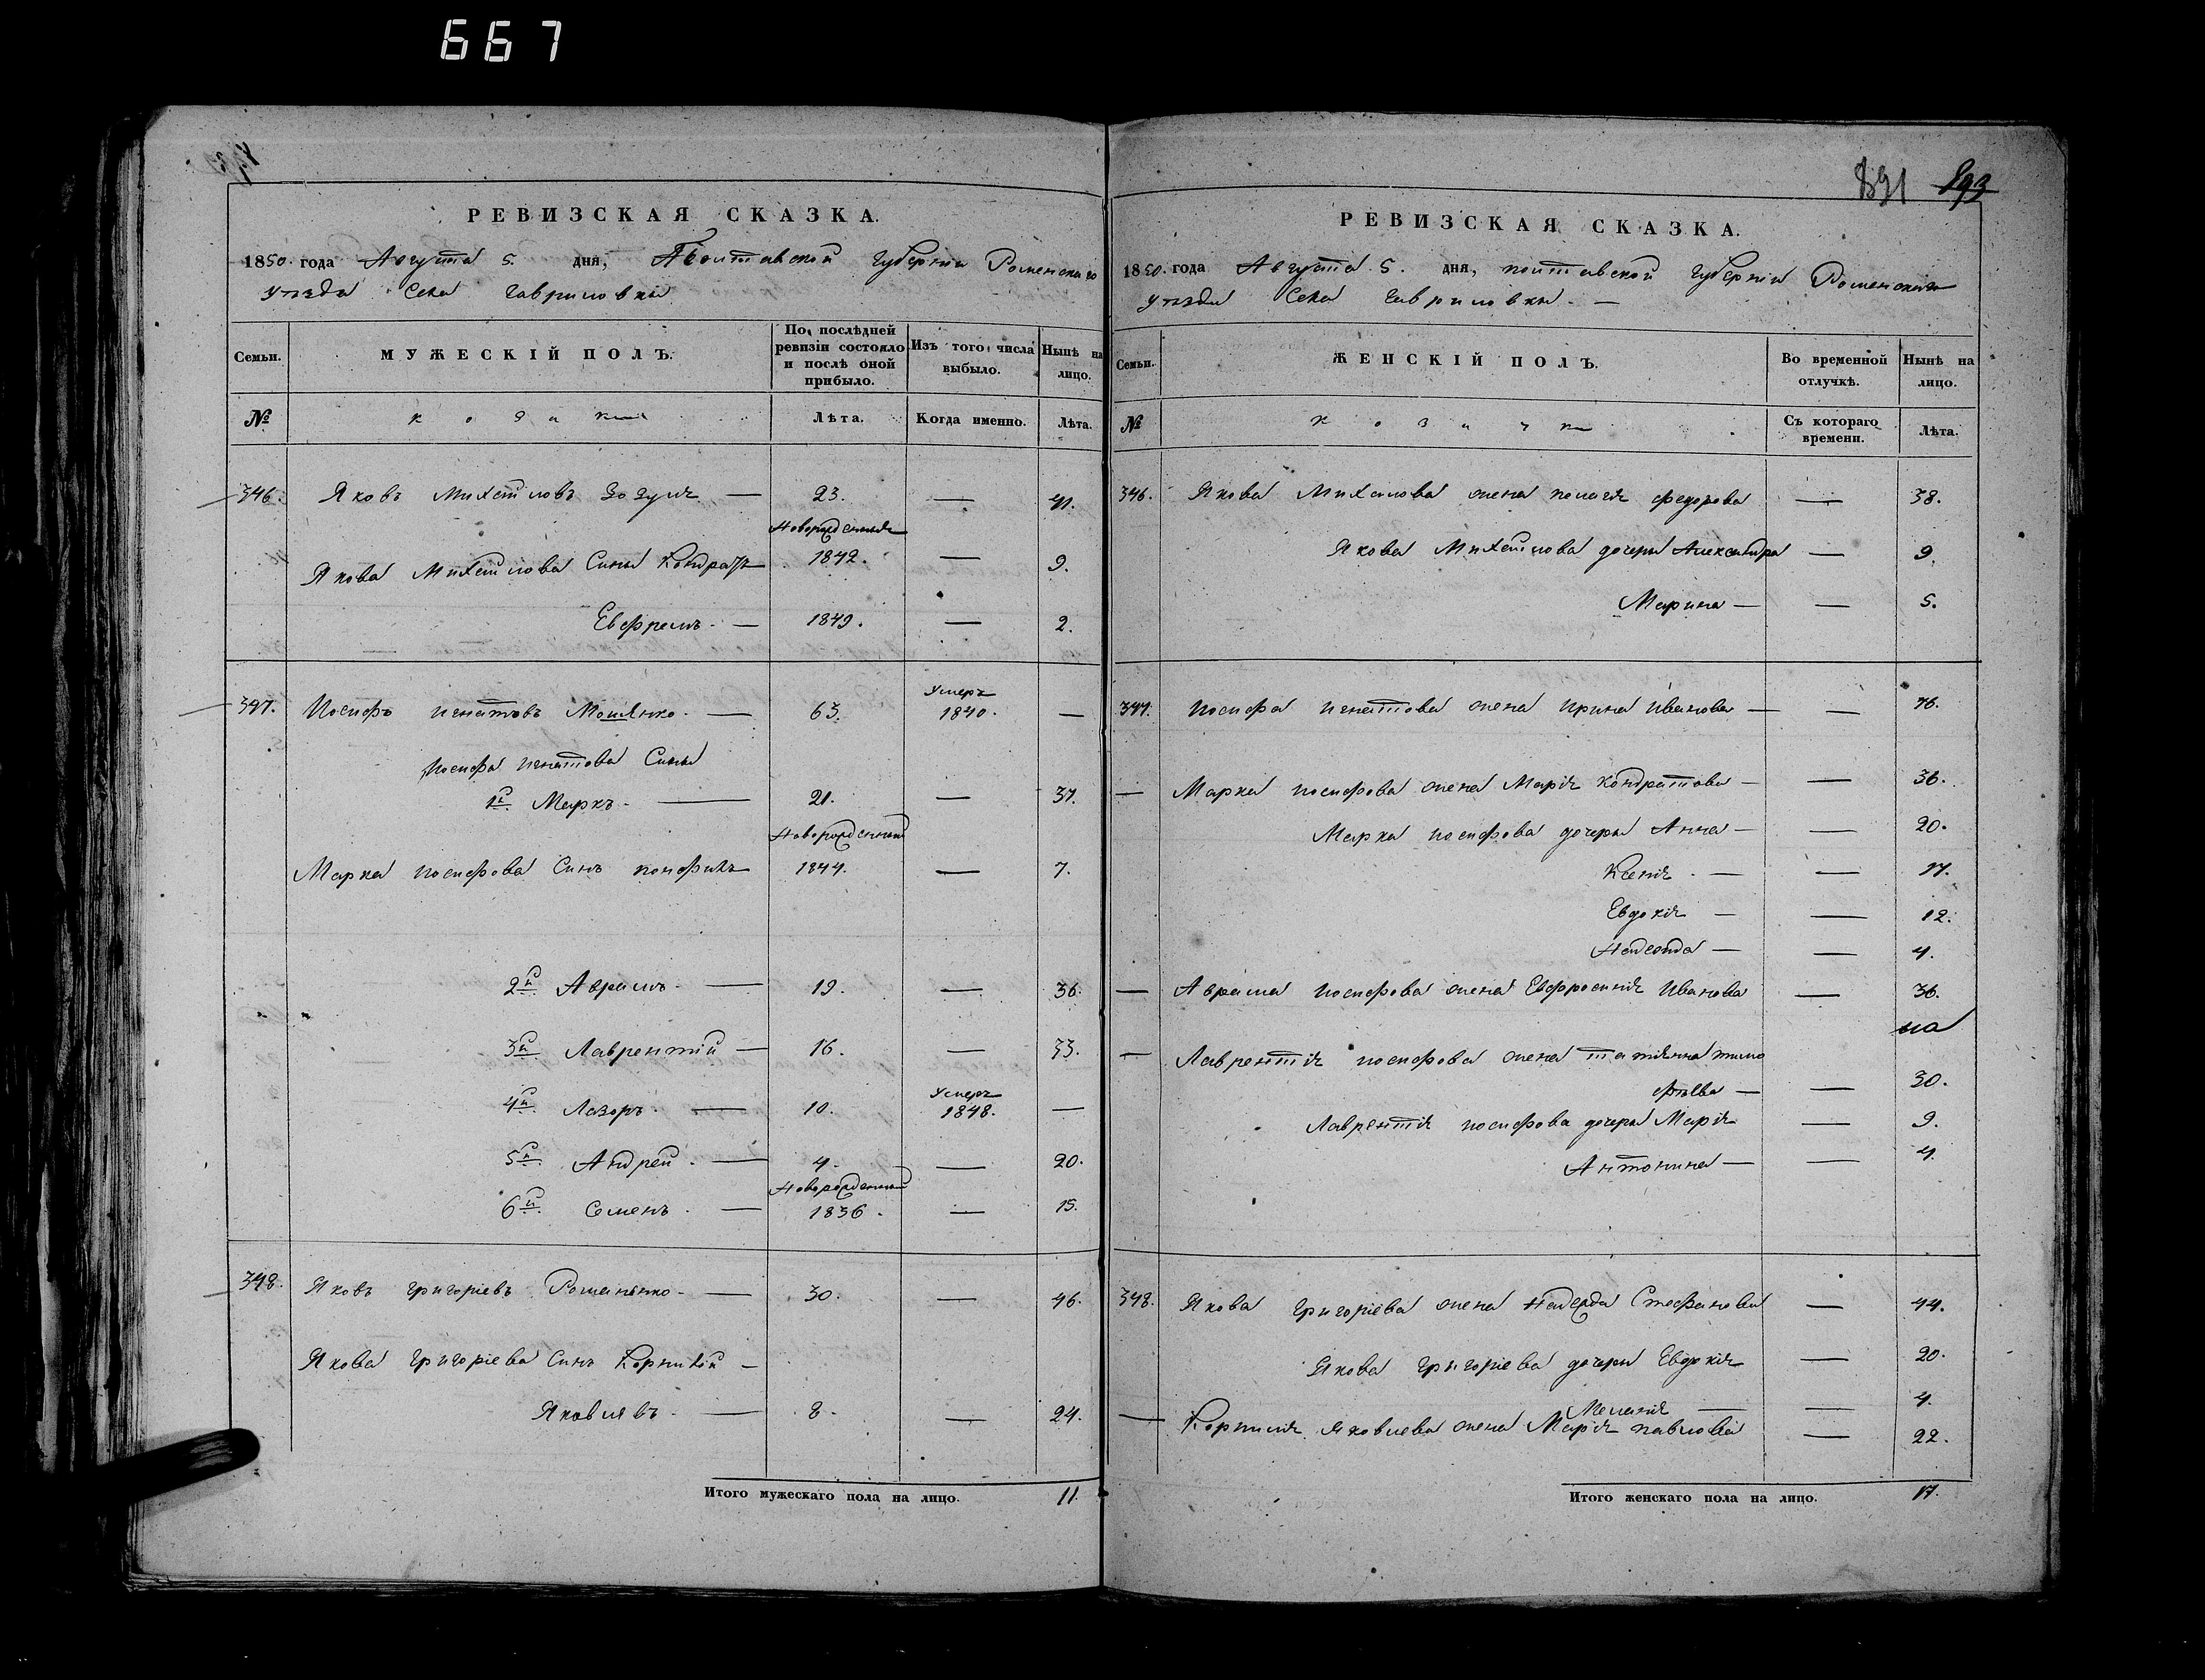 667
РЕВИЗСКАЯ СКАЗКА.
1850. года Августа 5. дня, Полтавской Губерніи Роменскаго
уѣзда Села Гавриловки
Семьи. МУЖЕСКІЙ ПОЛЪ. По послѣдней ревизіи состояло и послѣ оной прибыло. Изъ того числа выбыло. Нынѣ на лицо.
№ козаки Лѣта. Когда именно. Лѣта.
346. Яковъ Михайловъ Зозуля — 23. — 41.
Новорожденныя
Якова Михайлова Сыны Кондратъ 1842. — 9.
Евфремъ — 1849. — 2.
347. Иосифъ Игнатовъ — 63. Умеръ 1840. —
Иосифа Игнатова Сыны
1й Маркъ — 21. — 37.
Новорожденный
Марка Иосифова Сынъ 1844. — 7.
2й Аврамъ — 19. — 36.
3й Лаврентій — 16. — 33.
4й Лазоръ — 10. Умеръ 1848. —
5й Андрей — 4. — 20.
Новорожденный
6й Семенъ — 1836. — 15.
348. Яковъ Григоріевъ Романенко — 30. — 46.
Якова Григоріева Сынъ Корнилій —
Яковлевъ — 8. — 24.
Итого мужескаго пола на лицо. 11.
891 893
РЕВИЗСКАЯ СКАЗКА.
1850. года Августа 5. дня, полтавской Губерніи Роменскаго
уѣзда Села Гавриловки. —
Семьи. ЖЕНСКІЙ ПОЛЪ. Во временной отлучкѣ. Нынѣ на лицо.
№ козачки Съ котораго времени. Лѣта.
346. Якова Михайлова жена федорова — 38.
Якова Михайлова дочери Александра — 9.
Марина — — 5.
347. Иосифа Игнатова жена Ирина Иванова — 76.
— Марка Иосифова жена Марія Кондратова — — 36.
Марка Иосифова дочери Анна — — 20.
Ксенія — — 17.
Евдокія — — 12.
Надежда — — 4.
— Аврама Иосифова жена Евфросинія Иванова — 36.
— Лаврентія Иосифова жена татіянна тимо
фѣева — — 30.
Лаврентія Иосифова дочери Марія — 9.
Антонина — — 4.
348. Якова Григоріева жена Надежда Стефанова — 44.
Якова Григоріева дочери Евдокія — 20.
Меланія — — 4.
— Корнилія Яковлева жена Марія павлова — 22.
Итого женскаго пола на лицо. 17.